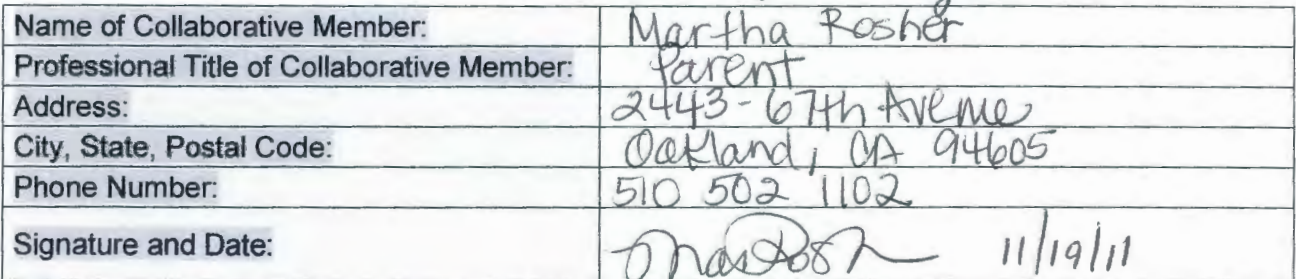 Name of Collaborative Member: Martha Rosher
Professional Title of Collaborative Member: Parent
Address: 2443-67th Avenue
City, State, Postal Code: Oakland, CA 94605
Phone Number: 510 502 1102
Signature and Date: 11/19/11